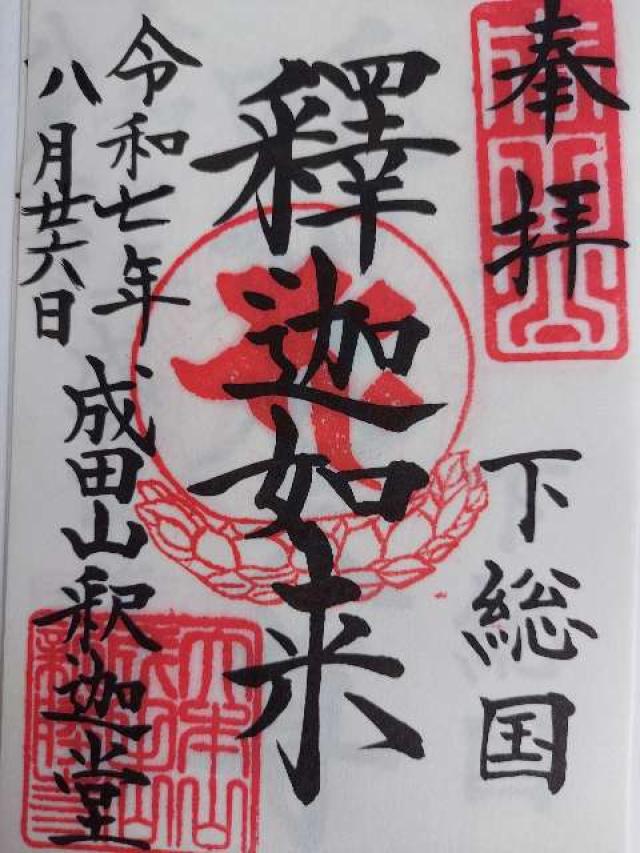 奉拝
下総国
釋迦如来
令和七年
八月廿六日
成田山釈迦堂